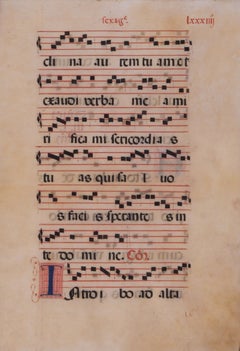 sexag͞e. lxxxiiij
clina au rem tu am et
exaudi verba me a mi
ri fica mi sericordia s
tu as qui sal uo
s facis sperante s in
te do mi ne. Cō.
Intro i bo ad alta